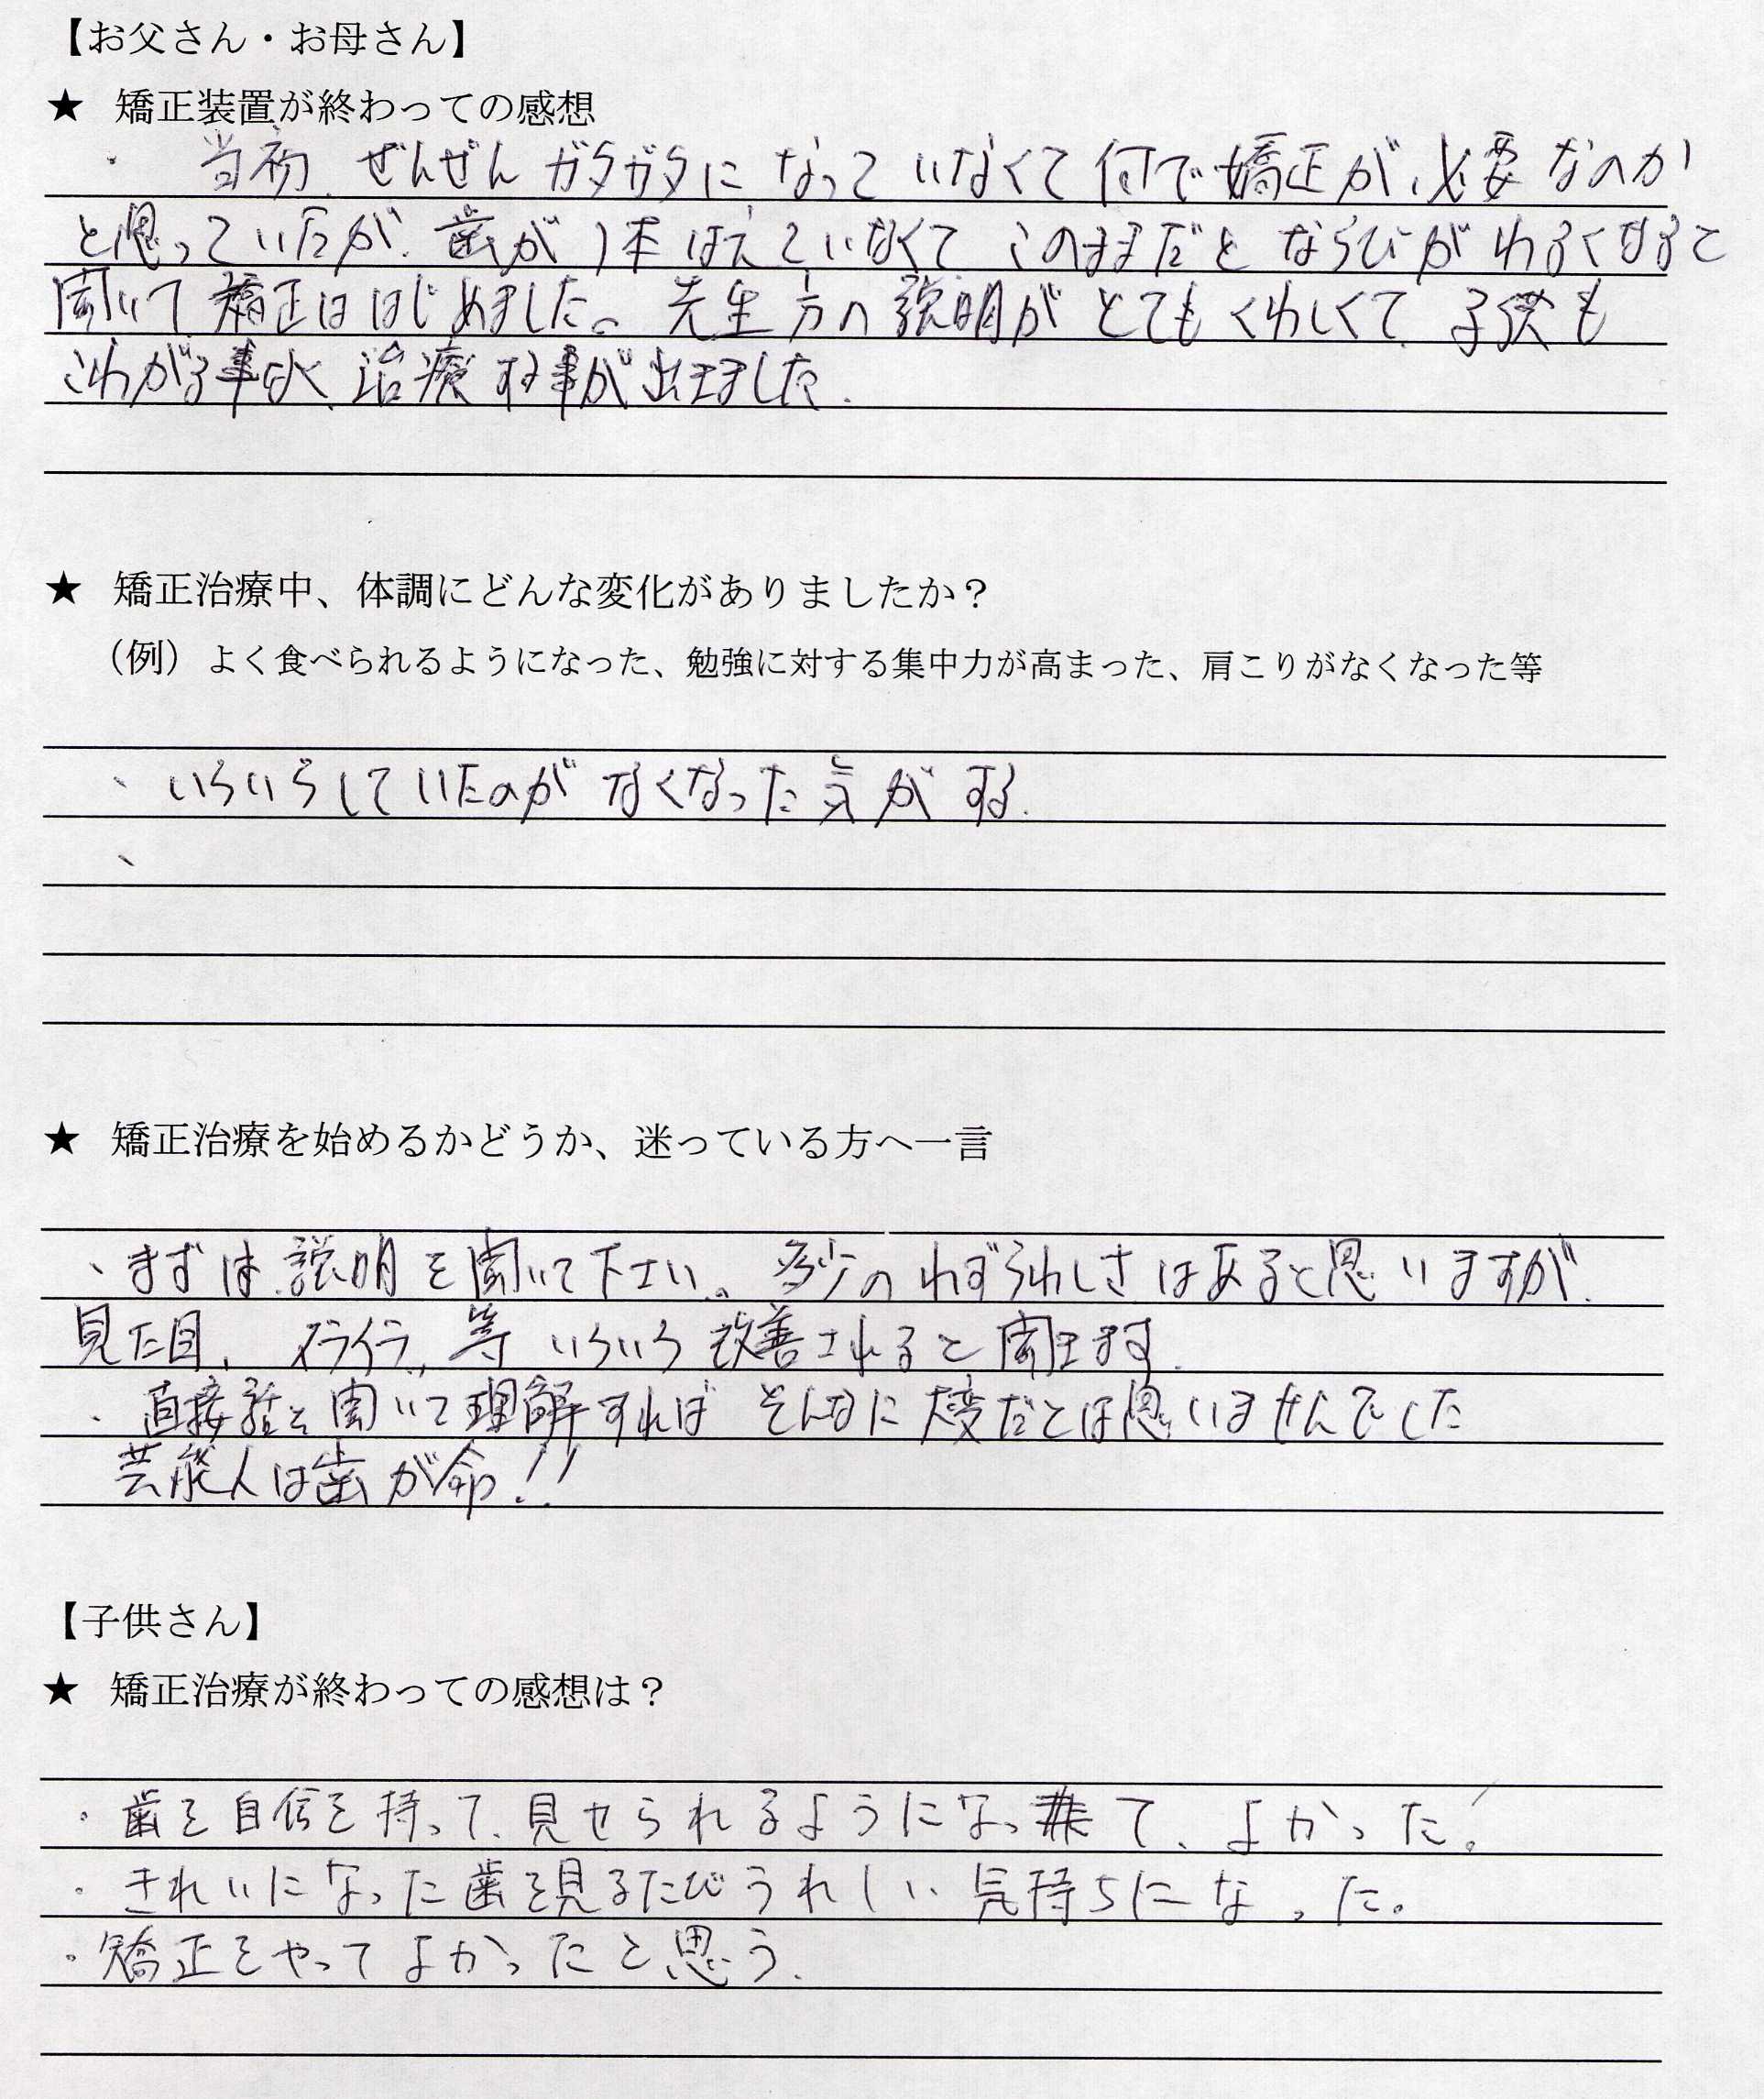 【お父さん・お母さん】
★ 矯正装置が終わっての感想
・ 当初、ぜんぜんガタガタになっていなくて何で矯正が必要なのか
と思っていたが、歯が1本はえていなくてこのままだとならびがわるくなると
聞いて矯正ははじめました。先生方の説明がとてもくわしくて、子供も
こわがる事なく、治療する事が出来ました.
★ 矯正治療中、体調にどんな変化がありましたか？
（例）よく食べられるようになった、勉強に対する集中力が高まった、肩こりがなくなった等
、いらいらしていたのがなくなった気がする.
、
★ 矯正治療を始めるかどうか、迷っている方へ一言
、まずは、説明を聞いて下さい。多少のわずらわしさはあると思いますが、
見た目、イライラ、等いろいろ改善されると聞きます.
・直接話を聞いて理解すればそんなに大変だとは思いませんでした
芸能人は歯が命!!
【子供さん】
★ 矯正治療が終わっての感想は？
・歯を自信を持って、見せられるようになって、よかった!
・きれいになった歯を見るたびうれしい気持ちになった。
・矯正をやってよかったと思う.